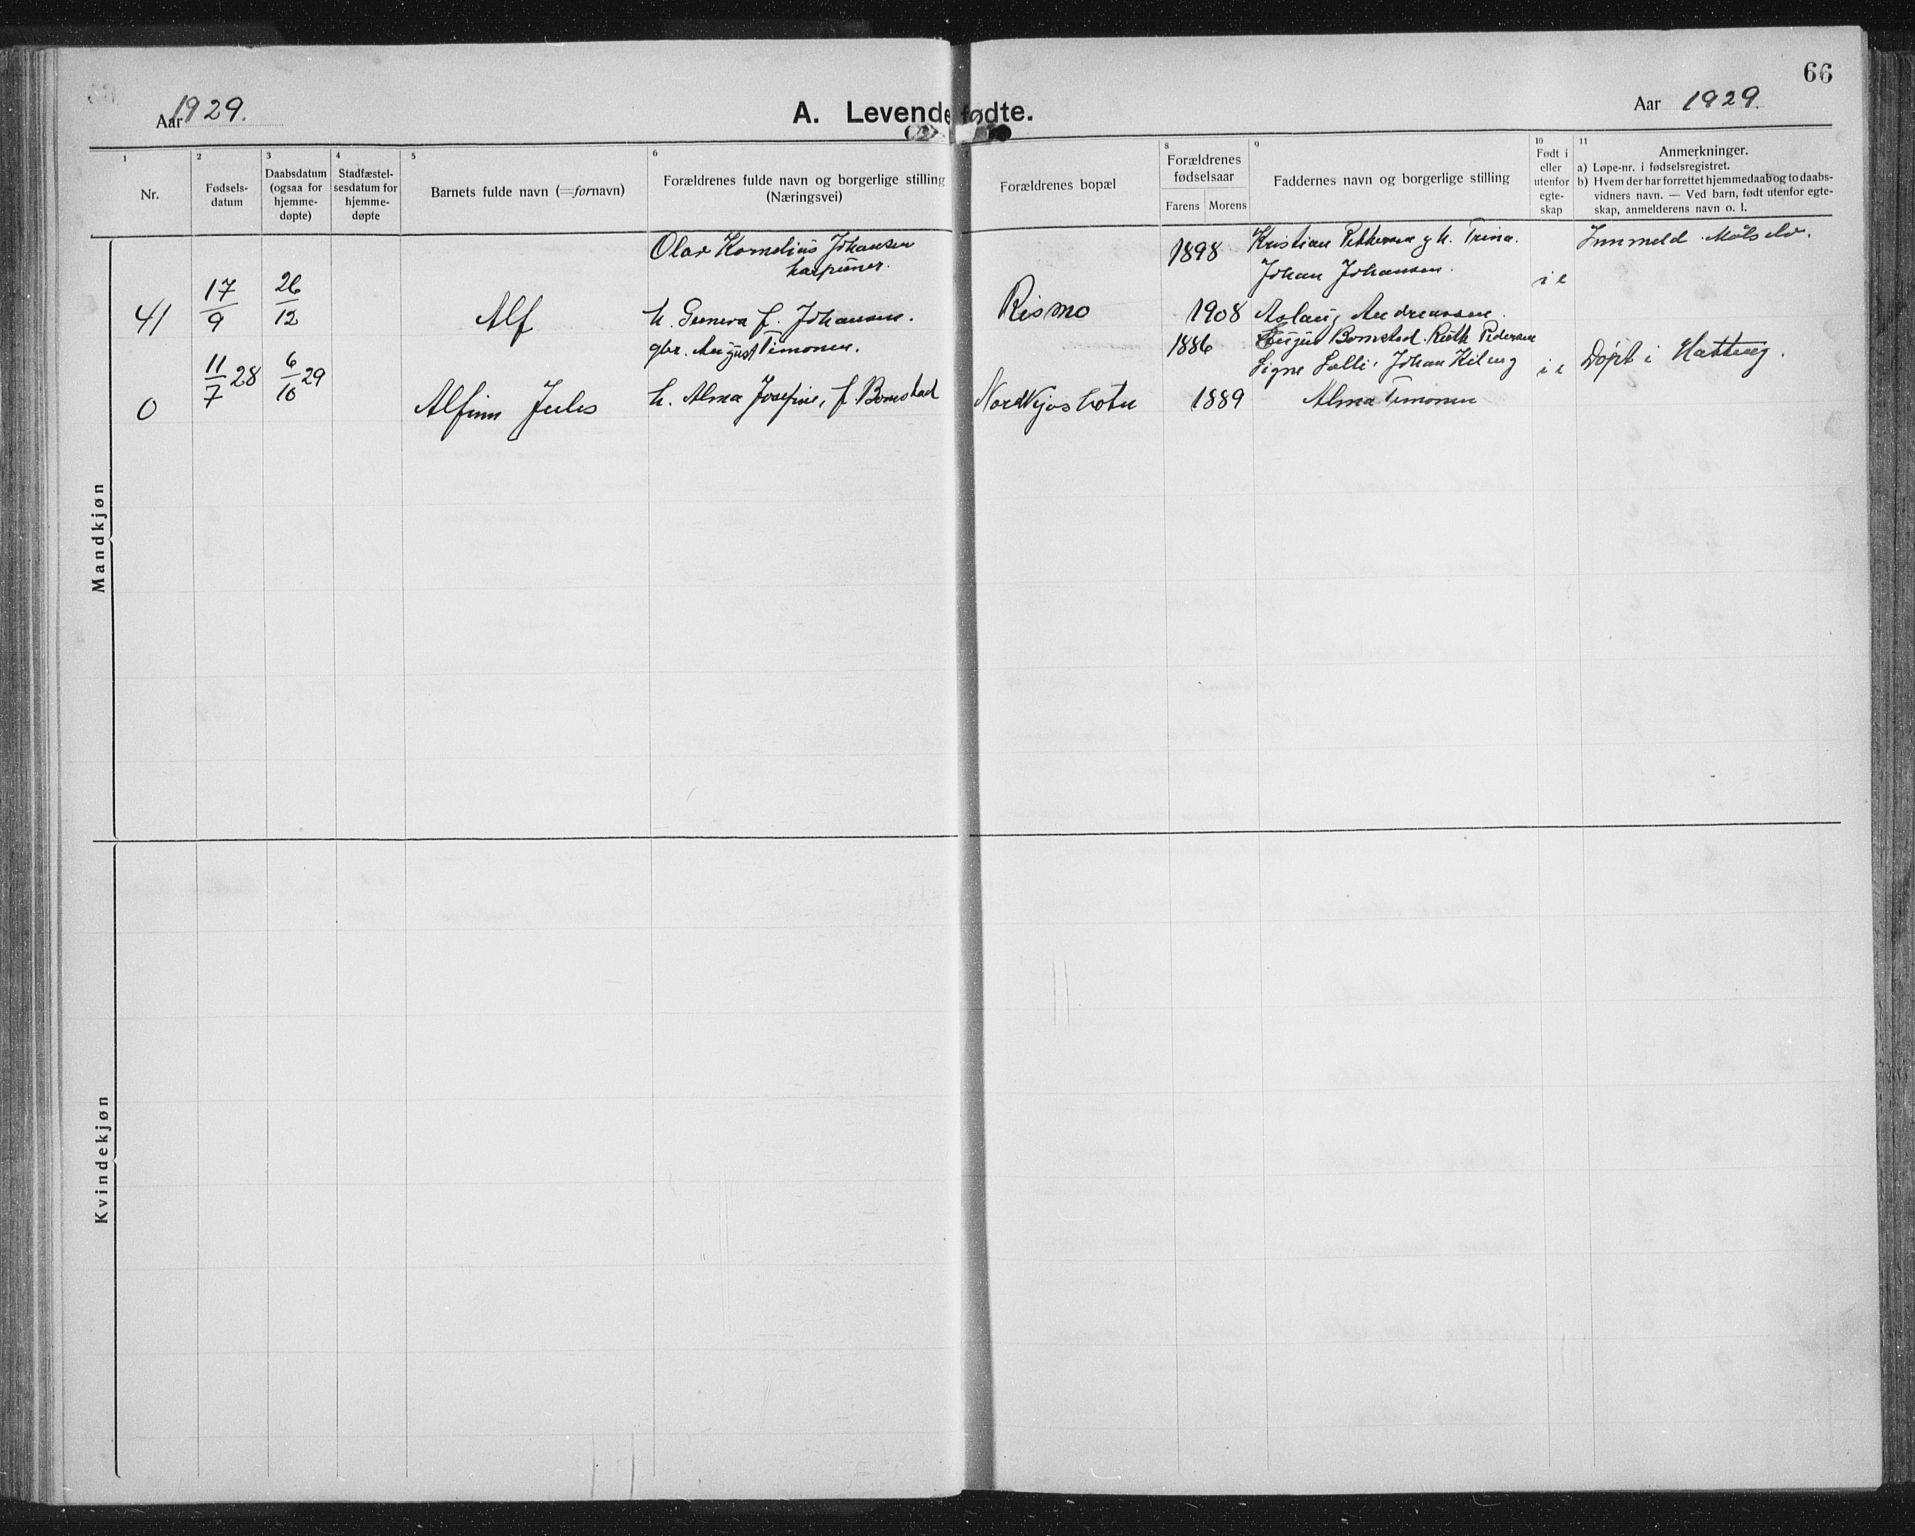 66
Aar 1929.
A. Levendefødte.
Aar 1929.
1 2 3 4 5 6 8 9 10 11
Nr.
Fødsels-
datum
Daabsdatum
(ogsaa for
hjemme-
døpte)
Stadfæstel-
sesdatum for
hjemme-
døpte
Barnets fulde navn (=fornavn)
Forældrenes fulde navn og borgerlige stilling
(Næringsvei)
Forældrenes bopæl
Forældrenes
fødselsaar
Farens Morens
Faddernes navn og borgerlige stilling
Født i
eller
utenfor
egte-
skap
Anmerkninger.
a) Løpe-nr. i fødselsregistret.
b) Hvem der har forrettet hjemmedaab og to daabs-
vidners navn. — Ved barn, født utenfor egte-
skap, anmelderens navn o. l.
Mandkjøn
41
17/9
26/12
Alf
Olav Kornelius Johansen
harpuner.
h. f. Johansen.
Rismo
1898
1908
Kristian Pettersen g h. Trina.
Johan Johansen.
Aslaug Andreassen.
i e
Innmeld. Målselv.
0
11/7 28
6/10 29
Alfinn Jules
gbr. August Timonen.
h. Alma Josefine, f. Bomstad
Nordkjosbotn
1886
1889
Bomstad. Ruth Pedersen
Signe Lolli, Johan
Alma Timonen
i e
Døpt i Hatteng.
Kvindekjøn